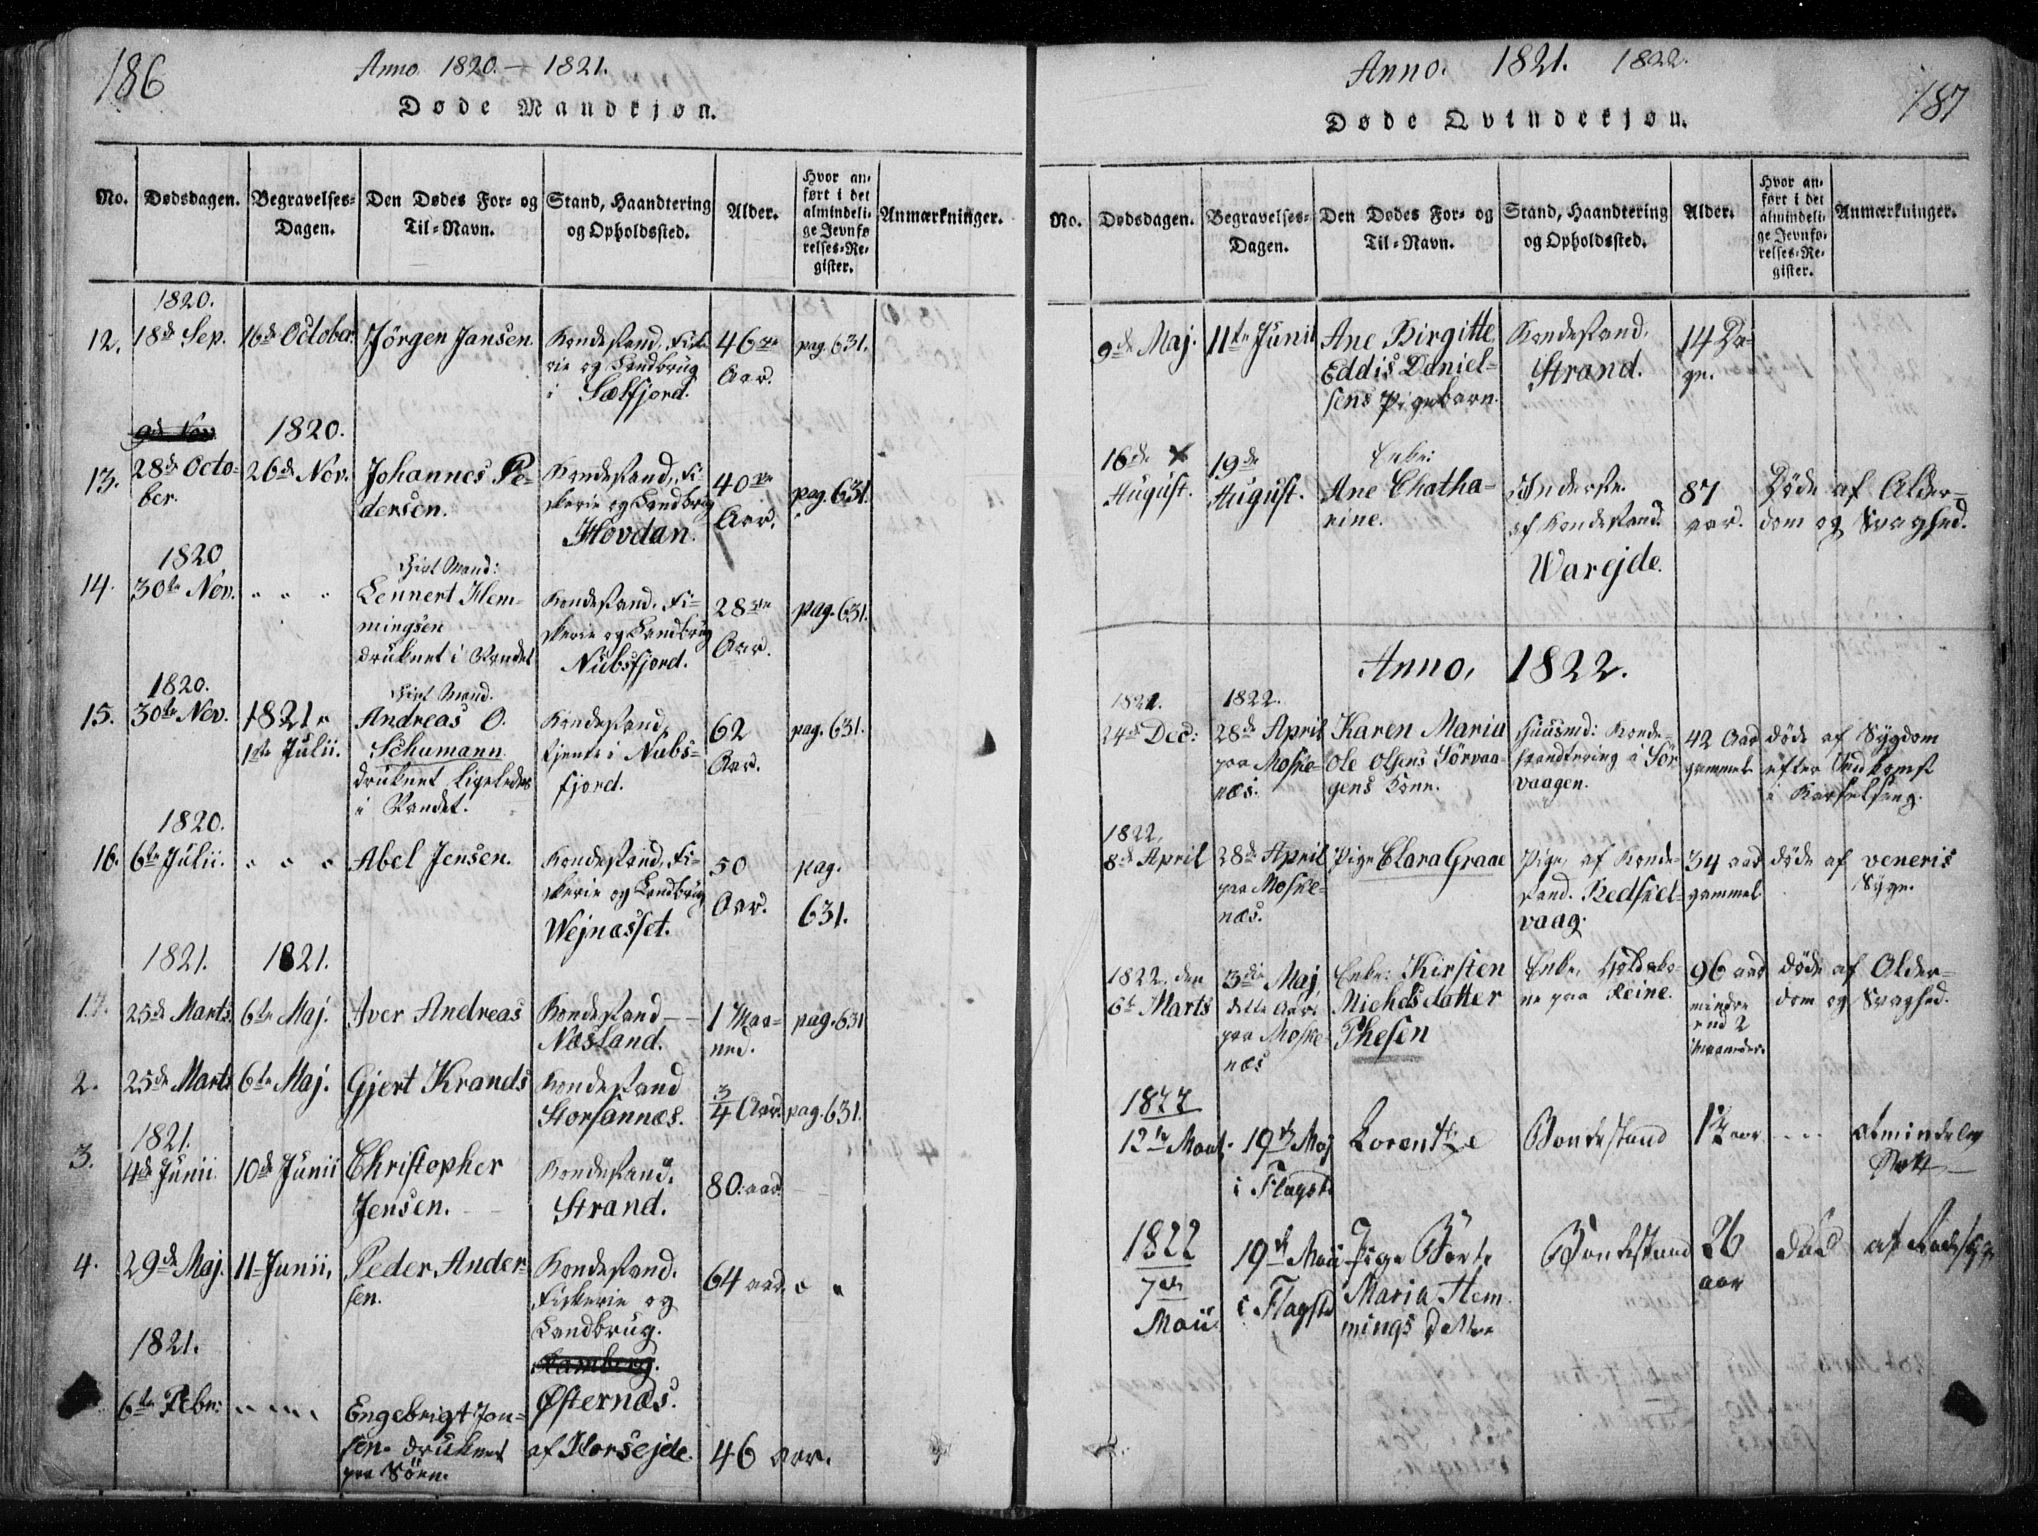 186
Anno 1820. — 1821.
Døde Mandkjøn.
No. Dødsdagen. Begravelses-Dagen. Den Dødes For- og Til-Navn. Stand, Haandtering og Opholdssted. Alder. Hvor anført i det almindelige Jevnførelses-Register. Anmærkninger.
1820.
12. 18de Sep. 16de October. Jörgen Jansen. Bondestand, Fiske-
rie og Landbrug
i Sælfjord.
46 Aar.
pag. 631.
1820.
13. 28de Octo-
ber.
26de Nov. Johannes Pe-
dersen.
Bondestand, Fi-
skerie og Landbrug
Hovdan.
40 Aar.
pag. 631.
1820
14. 30te Nov. " " "
Gift Mand:
Lennert Hem-
mingsen
druknet i Vandet
Bondestand. Fi-
skerie og Landbrug
Nubsfjord.
28 Aar.
pag. 631.
1820.
15. 30te Nov. 1821.
1ste Julii.
Gift Mand.
Andreas O.
Schumann
druknet ligeledes
i Vandet.
Bondestand,
tjente i Nubs-
fjord.
62
Aar.
pag. 631.
1820.
16. 6te Julii. " " " Abel Jensen. Bondestand, Fi-
skerie og Landbrug
Wejnæsset.
50
Aar.
pag.
631.
1821. 1821.
1. 25de Marts 6te Maj. Iver Andreas Bondestand
Næsland.
1 Maa-
ned.
pag. 631
2. 25de Marts 6te Maj. Gjert Krands Bondestand
Storsannæs.
3/4 Aar. pag. 631.
1821.
3. 4de Junii 10de Junii Christopher
Jensen.
Bondestand.
Strand.
80. aar
4. 29de Maj. 11 Junii, Peder Ander-
sen.
Bondestand.
Fiskerie og
Landbrug.
Ramberg.
Østernæs.
64 aar " "
1821.
6te Febr: " " " Engebrigt Jon-
sen. druknet
paa Söen.
af Horsejde. 46 aar.
187
Anno. 1821. 1822.
Døde Qvindekjøn.
No. Dødsdagen. Begravelses-Dagen. Den Dødes For- og Til-Navn. Stand, Haandtering og Opholdssted. Alder. Hvor anført i det almindelige Jevnførelses-Register. Anmærkninger.
9de Maj. 11te Junii Ane Birgitte
Eddis Daniel-
sens Pigebarn.
Bondestand.
Strand.
14 Da-
ge.
16de
August.
19de
August.
Enke:
Ane Chatha-
rine.
af Bondestand.
Warejde.
87
aar.
Døde af Alder-
dom og Svaghed.
Anno, 1822.
1821. 1822.
24de Dec: 28de April
paa Moske-
næs.
Karen Maria
Ole Olsens Sörvaa-
gens Kone.
Huusmd: Bonde-
Haandtering i Sör
vaagen.
42 Aar
gammel
døde af Sygdom
efter
i Barselseng.
1822.
8de April 28de April
paa Moske-
næs.
Pige Clara Graae Pige, af Bonde-
stand. Reedskel-
vaag.
34 aar
gammel
døde af veneris
Syge.
1822. den
6te Marts
3die Maj
dette Aar
paa Moske-
næs
Enke: Kirsten
Michelsdatter
Thesen
Enke,
paa Reine.
96 aar
mindre
end 2
Maaneder.
døde af Alder-
dom og Svaghed.
1822
12te 19de Maj
i Flagstd
Lorentze Bondestand 1 1/2 aar
1822
7de
Maii
19de Maii
i Flagstd
Pige Berte
Maria Hem
mings Datter
Bondestand 26
aar
død af